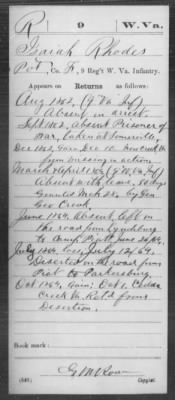 R | 9 | W. Va.
Isaiah Rhodes
Pvt., Co. K, 9 Reg't W. Va. Infantry.
Appears on
Returns as follows:
Aug 1862, (9 Va Inf)
Absent in arrest.
Sept 1862, Absent Prisoner of
War, taken at Summerville,
Dec 1862, Gain, Dec 10,
from missing in action,
March & April 1864 (9 W Va Inf)
Absent with leave, 30 days
Granted Mch 28, by Gen
Geo Crook,
June 1864, Absent, left on
the road from Lynchburg
to Camp Piatt June 26/64,
July 1864 loss, July 12/64,
Deserted on the road from
Piatt to Parkersburg,
Oct 1864, Gain; Oct 1, Cedar
Creek Va. Ret'd from
Desertion.
Book mark:
(546)
Copyist.